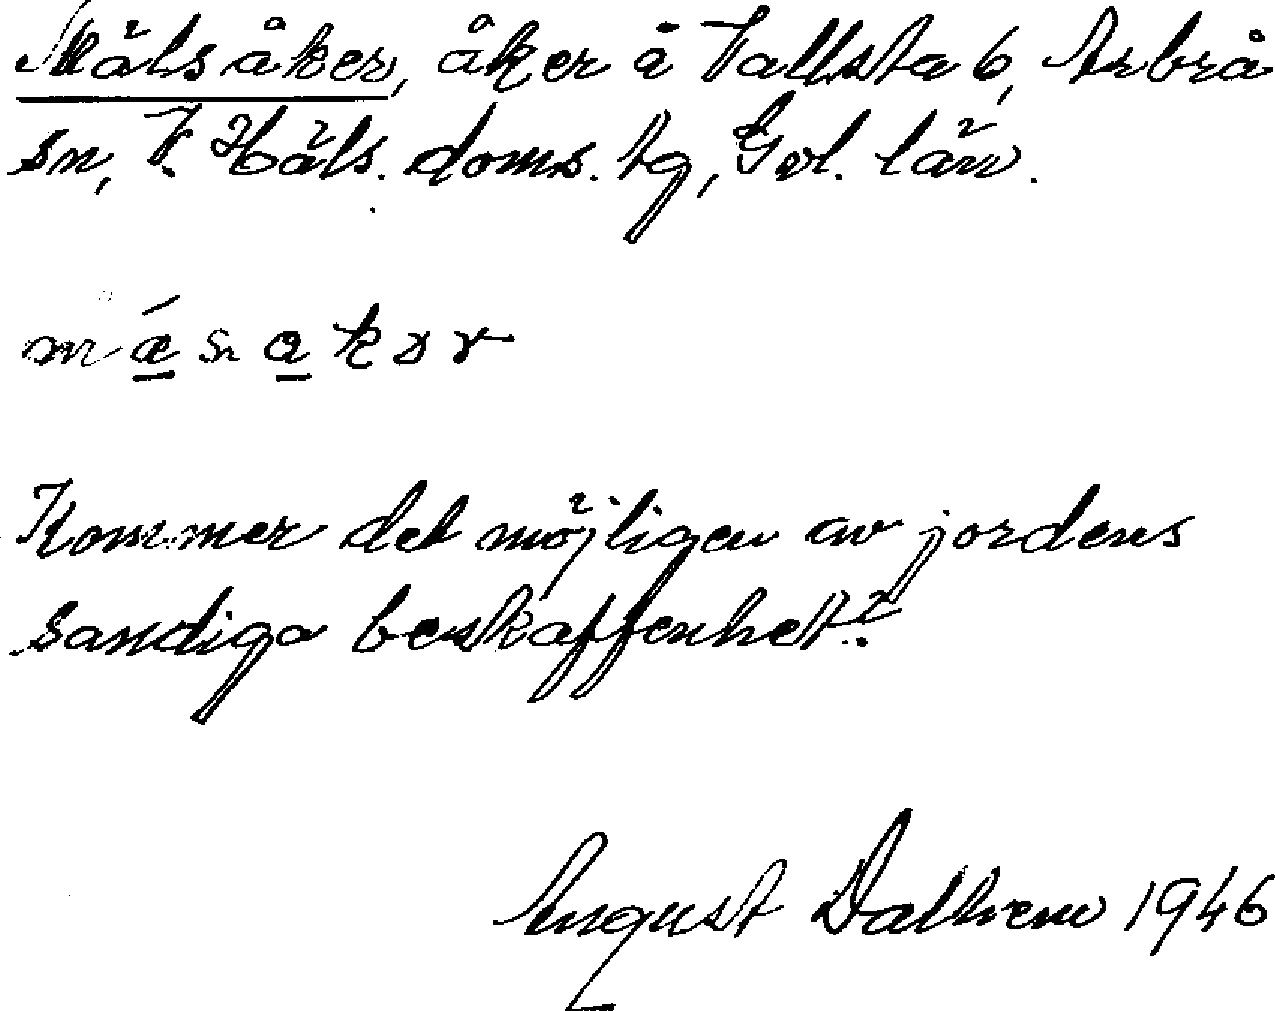 Mälsåker, åker å Vallsta 6, Arbrå
sn, V. Häls. doms. tg, Gvl. län.
m ǽ s a k ə r
Kommer det möjligen av jordens
sandiga beskaffenhet?
August Dalhem 1946